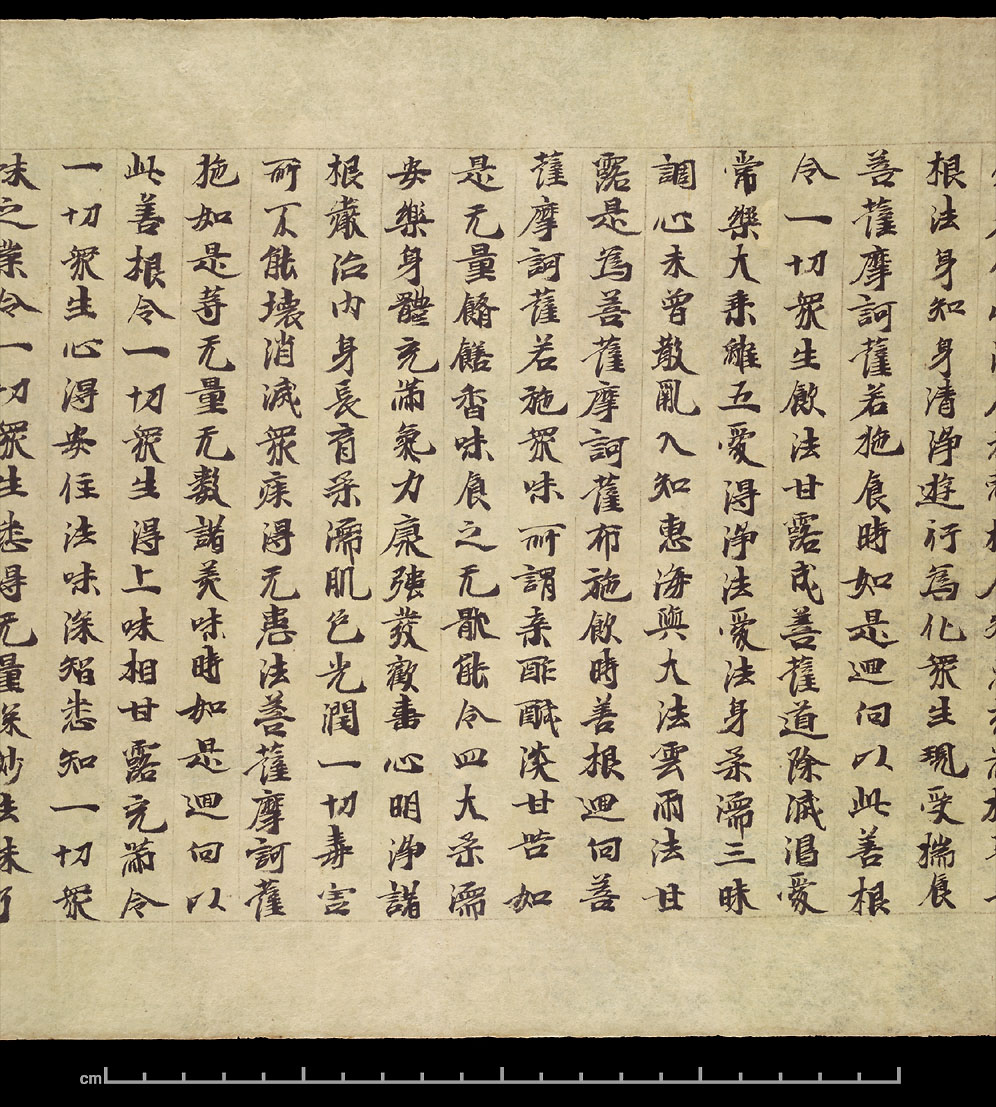 根法身知身清淨遊行為化眾生現受揣食
菩薩摩訶薩若施食時如是迴向以此善根
令一切眾生飲法甘露成菩薩道除滅渴愛
常樂大乘離五愛得淨法愛法身柔濡三昧
調心未曾散亂入知惠海興大法雲雨法甘
露是為菩薩摩訶薩布施飲時善根迴向菩
薩摩訶薩若施眾味所謂辛酢醎淡甘苦如
是无量餚饍香味食之无猒能令四大柔濡
安樂身體充滿氣力康強發歡喜心明淨諸
根治內身長育柔濡肌色光潤一切毒害
所不能壞消滅眾病得无患法菩薩摩訶薩
施如是等无量无數諸美味時如是迴向以
此善根令一切眾生得上味相甘露充滿令
一切眾生心得安住法味深智悉知一切眾
味之業令一切眾生悉得无量深妙法味了
cm